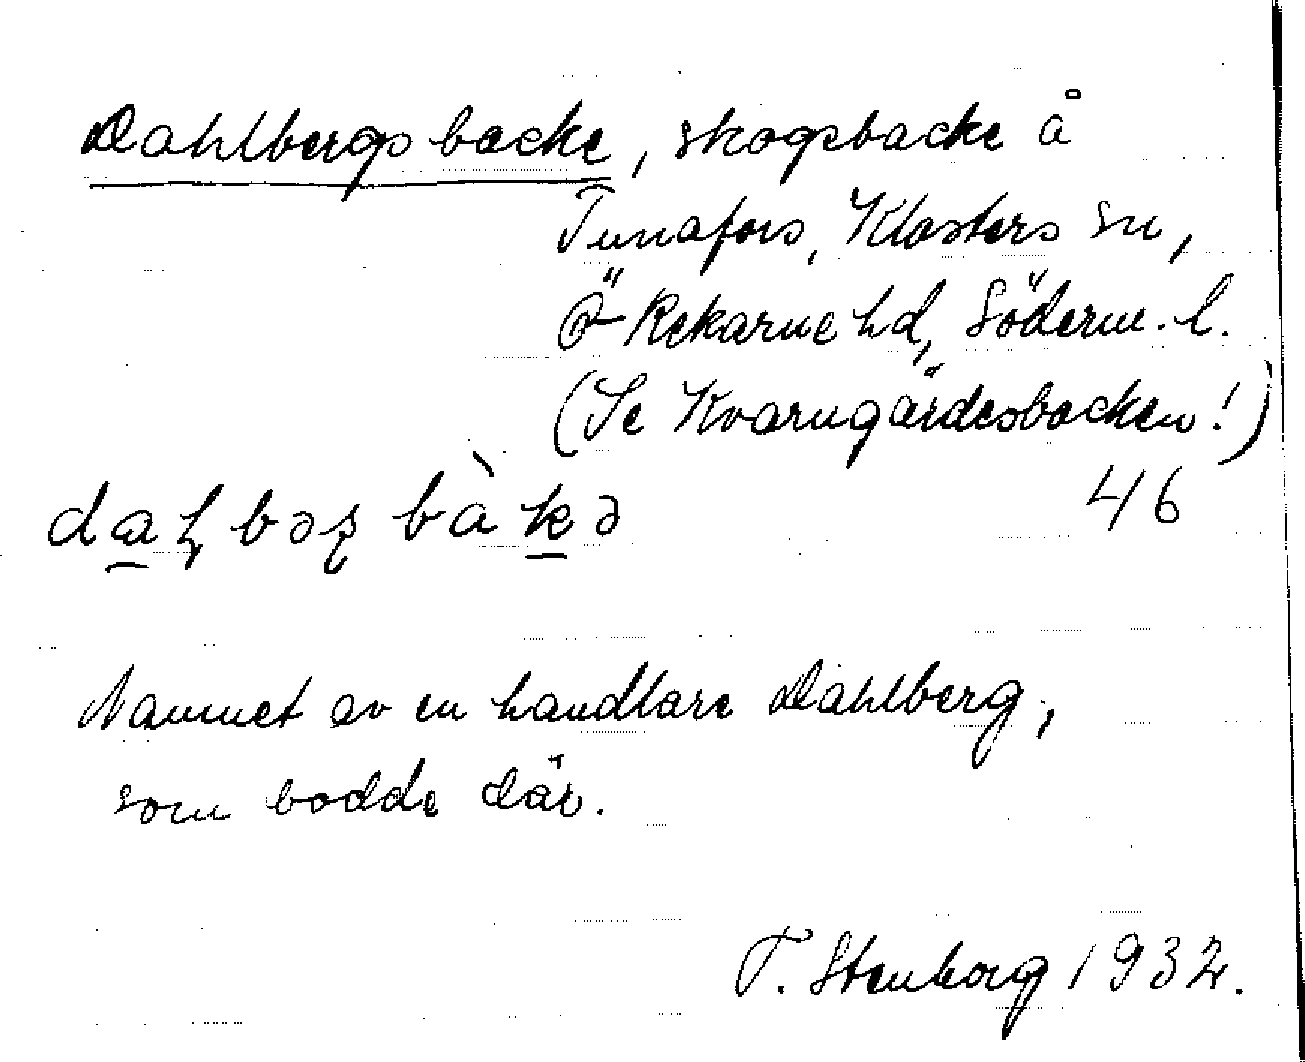 Dahlbergs backe, skogsbacke å
Tunafors, Klosters sn,
Ö Rekarne hd, Söderm. l.
(Se Kvarngärdesbacken!)
46
Namnet av en handlare Dahlberg,
som bodde där.
T. Stenborg 1932.